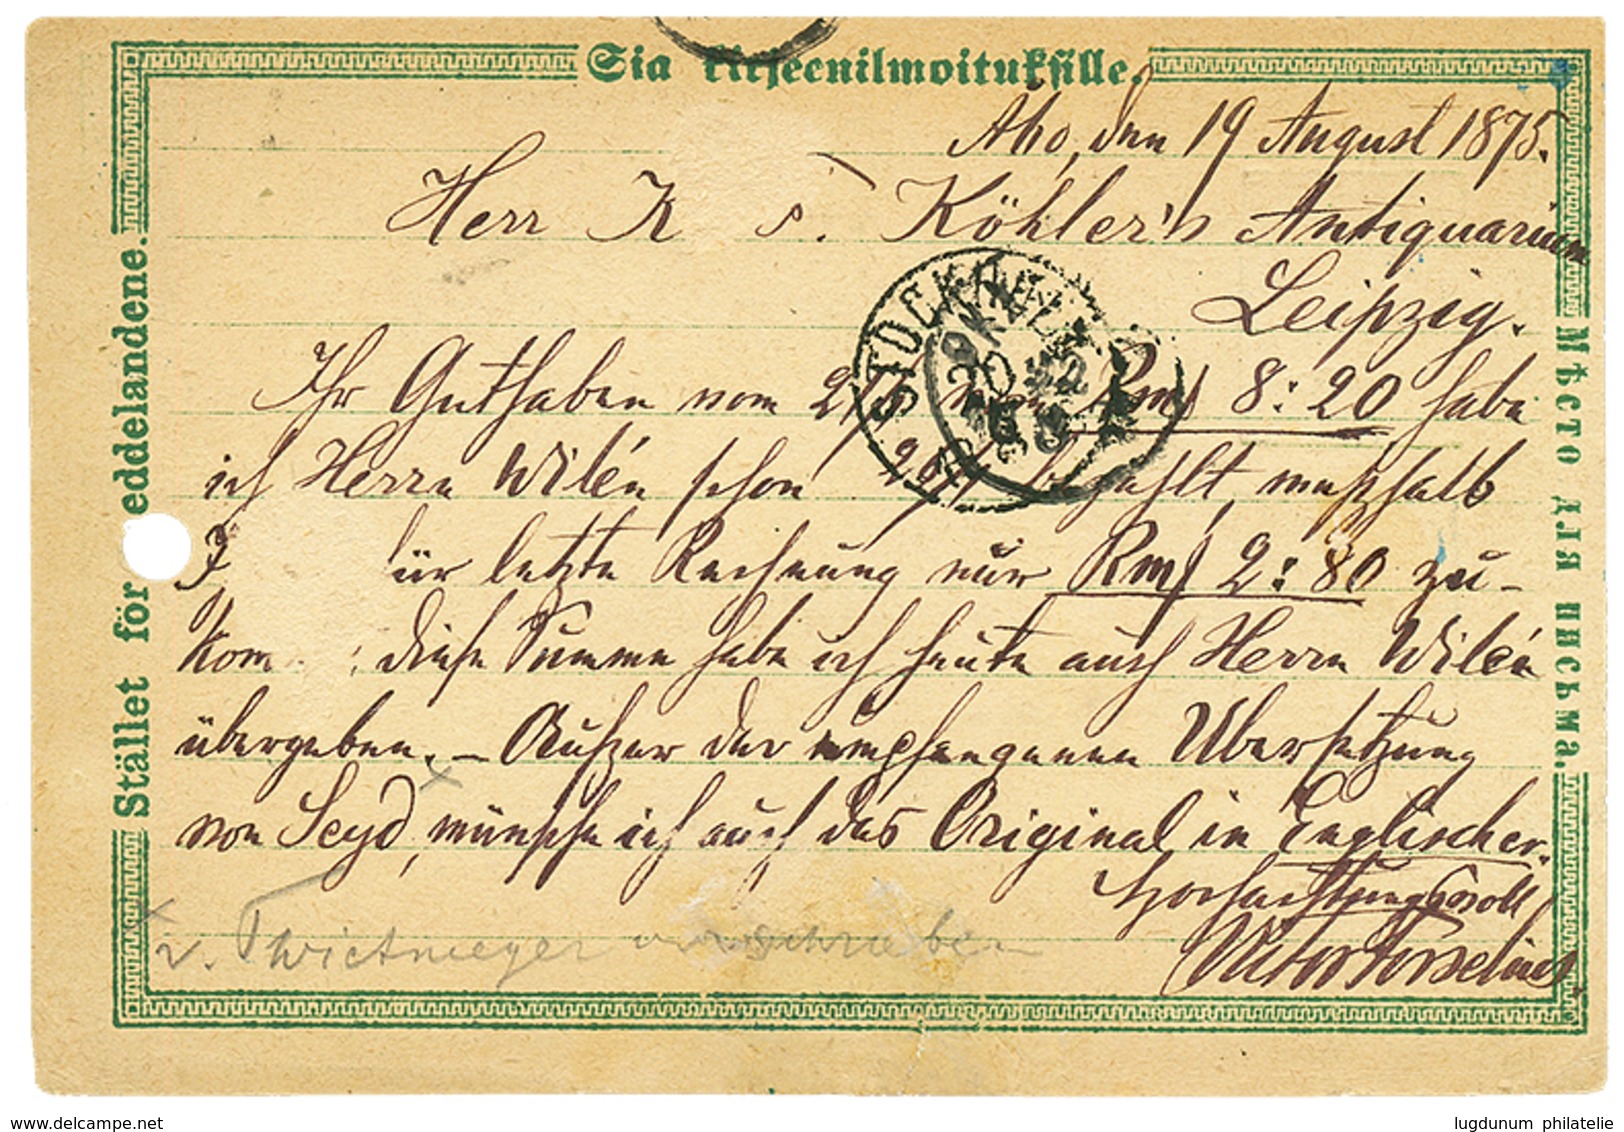 Sia kirjeenilmoituksille.
Åbo, den 19 August 1875.
Herr K s. Köhler's Antiquarium
Leipzig.
Ihr Guthaben vom 2/ Rmf 8:20 habe
ich Herrn Wilén schon bezahlt, weshalb
für letzte Rechnung nur Rmf 2:80 zu-
kom diese Summe habe ich heute auch Herrn Wilén
übergeben. – Außer der empfangenen Übersetzung
von Seyd, wünsche ich auch das Original in Englischer.
Hochachtungsvoll
Victor Forselius
v. Twietmeyer verschrieben
Stället för meddelandene.
Мѣсто для письма.
STOCKHOLM
delcampe.net
lugdunum philatelie